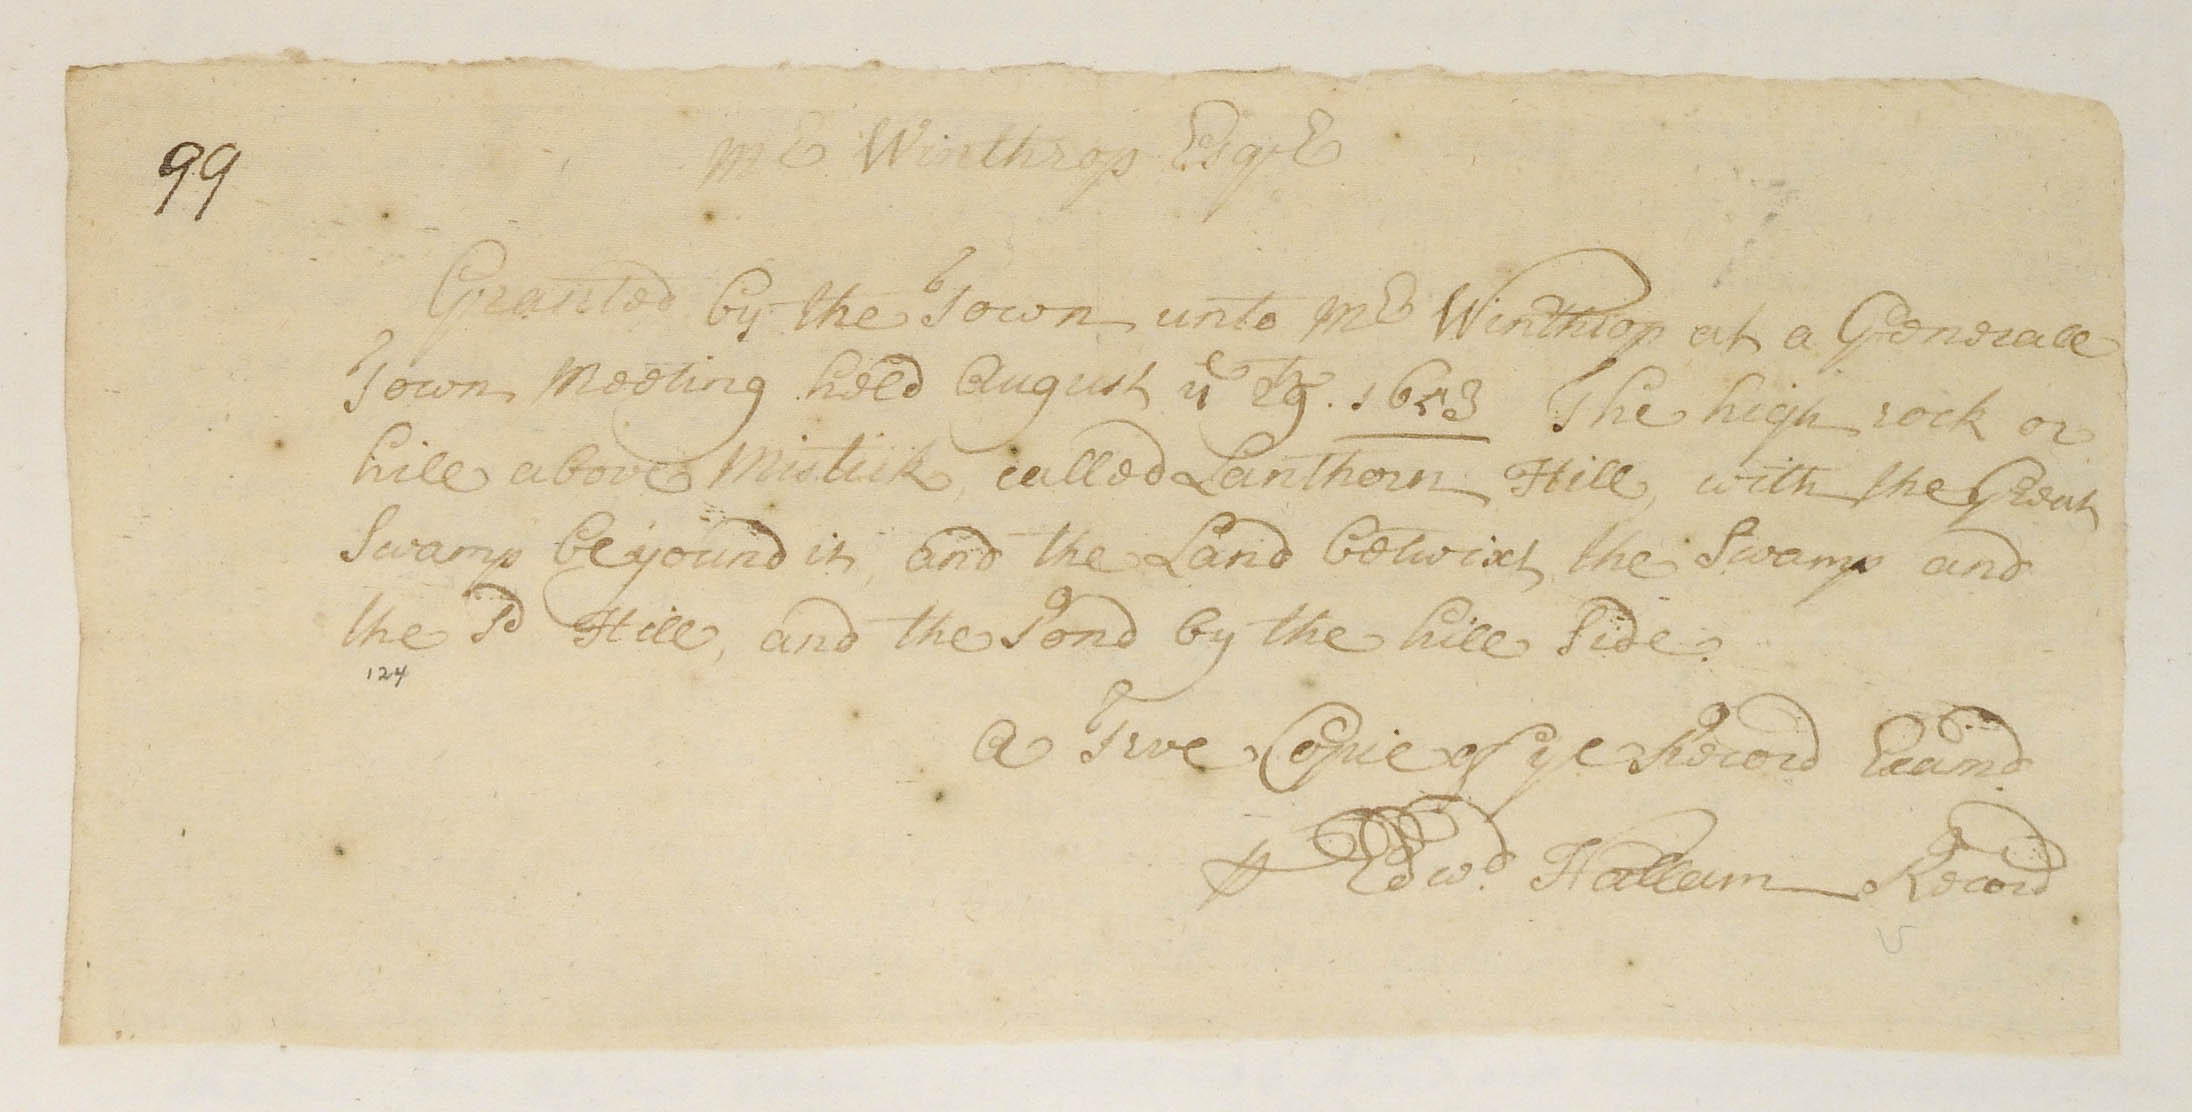 99
Mr Winthrop Esqr
Granted by the Town unto Mr Winthrop at a Generall
Town Meeting held August ye 29th. 1653 The high rock or
hill above Mistick, called Lanthorn Hill, with the Great
Swamp beyound it, and the Land betwixt the Swamp and
the Sd Hill, and the Pond by the hill Side.
124
A True Copie of ye Record Exand.
Edwd. Hallam Record